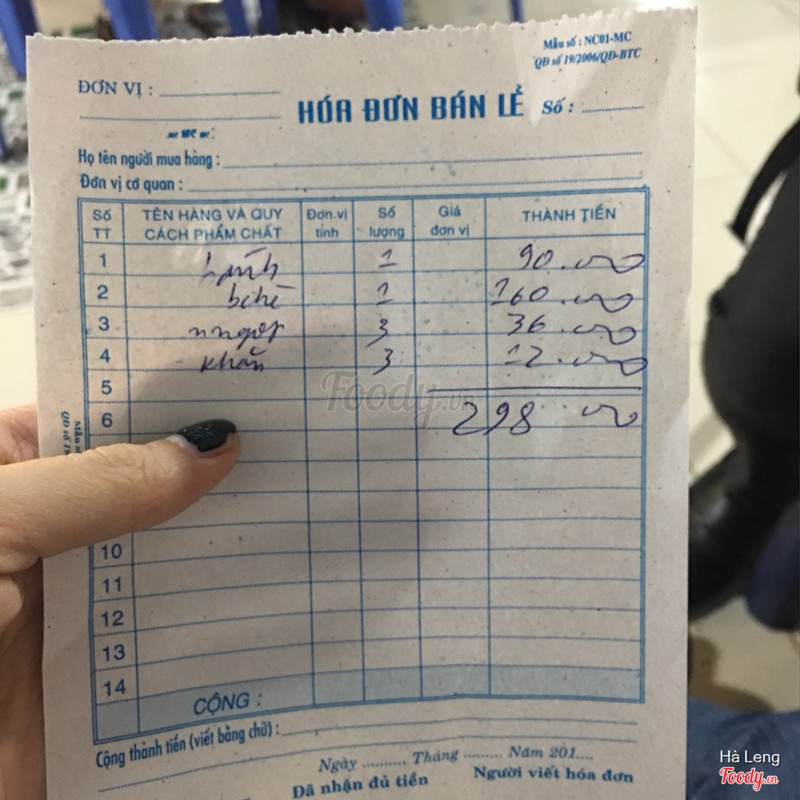 Mẫu số : NC01-MC
QĐ số 19/2006/QĐ-BTC
ĐƠN VỊ :
HÓA ĐƠN BÁN LẺ Số :
MC
Họ tên người mua hàng :
Đơn vị cơ quan :
Số TT TÊN HÀNG VÀ QUY CÁCH PHẨM CHẤT Đơn.vị tính Số lượng Giá đơn vị THÀNH TIỀN
1 1 90.000
2 1 160.000
3 nngọt 3 36.000
4 khăn 3 12.000
5
6 298.000
10
11
12
13
14
CỘNG :
Cộng thành tiền (viết bằng chữ) :
Ngày .......... Tháng ......... Năm 201....
Đã nhận đủ tiền Người viết hóa đơn
Foody.vn
Hà Leng
Foody.vn